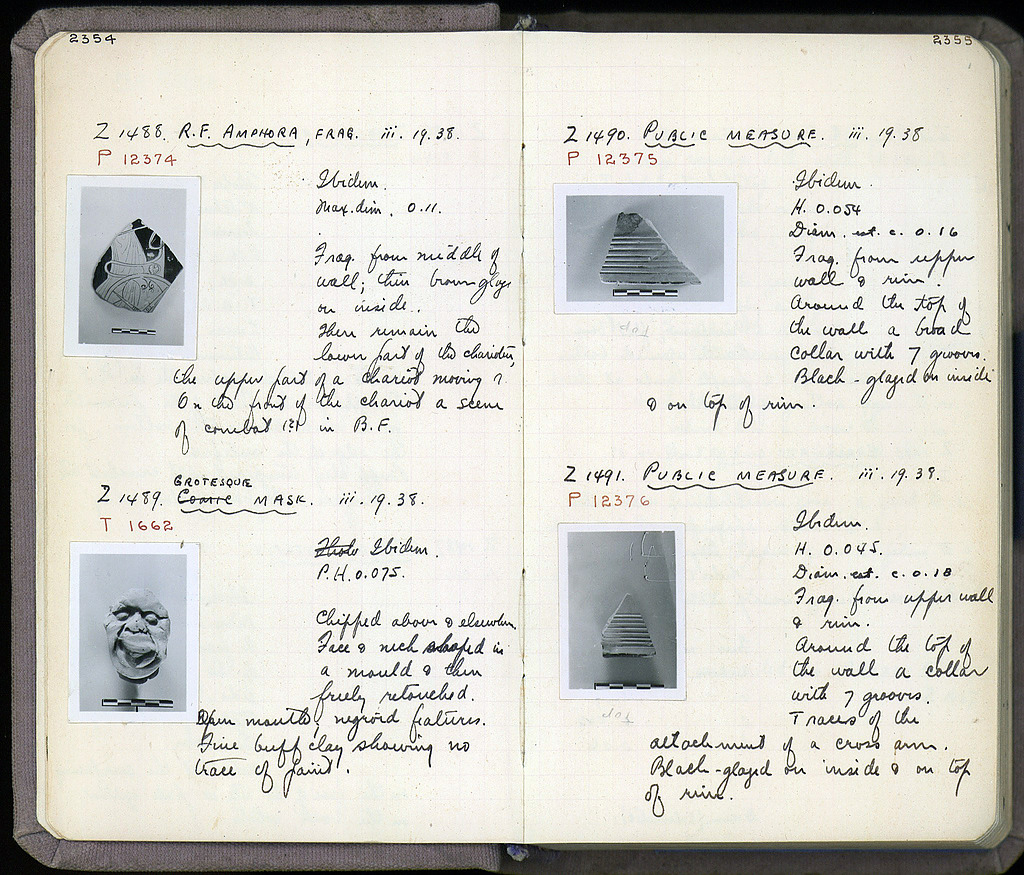 2354
Z 1488. R.F. AMPHORA, FRAG. iii. 19.38.
P 12374
Ibidem.
Max. dim. 0.11.
Frag. from middle of
wall; thin brown glaze
on inside.
There remain the
lower part of the charioteer,
the upper part of a chariot moving r.
On the front of the chariot a scene
of combat in B.F.
GROTESQUE
Z 1489. Comic MASK. iii. 19.38.
T 1662
Ibidem.
P.H. 0.075.
Chipped above & elsewhere.
Face & neck shaped in
a mould & then
freely retouched.
Open mouth; negroid features.
Fine buff clay showing no
trace of paint.
2355
Z 1490. PUBLIC MEASURE. iii. 19.38
P 12375
Ibidem.
H. 0.054
Diam. est. c. 0.16
Frag. from upper
wall & rim.
Around the top of
the wall a broad
collar with 7 grooves.
Black-glazed on inside
& on top of rim.
Top
Z 1491. PUBLIC MEASURE. iii. 19.38.
P 12376
Ibidem.
H. 0.045.
Diam. est. c. 0.18
Frag. from upper wall
& rim.
Around the top of
the wall a collar
with 7 grooves.
Traces of the
attachment of a cross arm.
Black-glazed on inside & on top
of rim.
Top